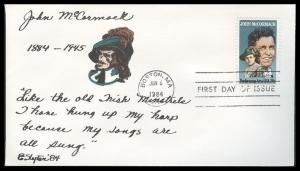 John McCormack
1884 - 1945
"Like the old Irish Minstrels
I have hung up my harp
because my songs are
all sung."
JOHN McCORMACK
BOSTON, MA
JUN 6
1984
FIRST DAY OF ISSUE